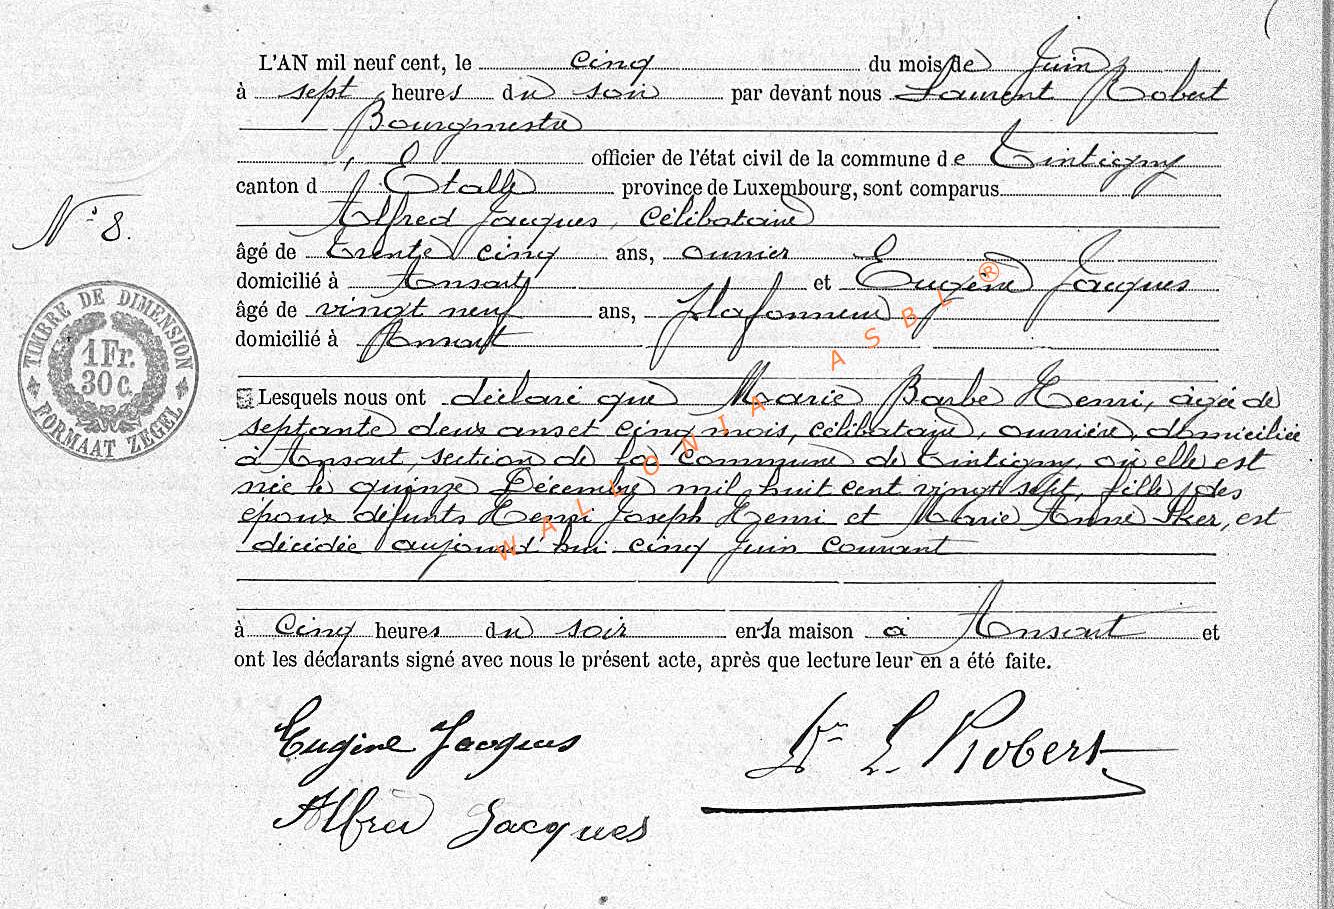 L'AN mil neuf cent, le cinq du mois de Juin
à sept heures du soir par devant nous Laurent Robert
Bourgmestre
officier de l'état civil de la commune de Tintigny
canton d'Etalle province de Luxembourg, sont comparus
Alfred Jacques, célibataire
N° 8.
âgé de trente cinq ans, ouvrier
domicilié à Ansart et Eugène Jacques
âgé de vingt neuf ans, plafonneur
domicilié à Ansart
TIMBRE DE DIMENSION
1 Fr.
30 c.
FORMAAT ZEGEL
Lesquels nous ont déclaré que Marie Barbe Henri, âgée de
septante deux ans et cinq mois, célibataire, ouvrière, domiciliée
à Ansart, section de la commune de Tintigny, où elle est
née le quinze Décembre mil huit cent vingt sept, fille des
époux défunts Henri Joseph Henri et Marie Anne, est
décédée aujourd'hui cinq Juin courant
à cinq heures du soir en la maison à Ansart et
ont les déclarants signé avec nous le présent acte, après que lecture leur en a été faite.
Eugène Jacques
L. Robert
Alfred Jacques
WALLONIA ASBL ®